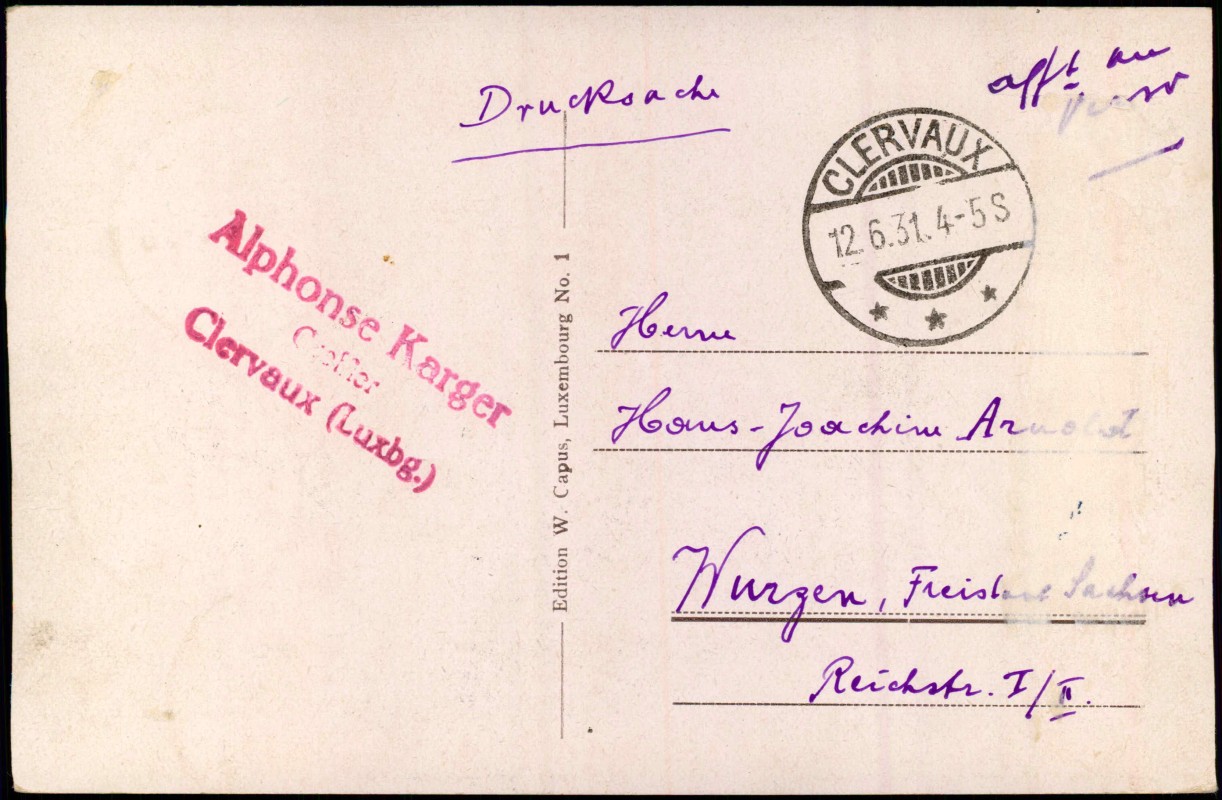 Drucksache
afft au
verso
CLERVAUX
12.6.31.4-5S
Alphonse Karger
Greffier
Clervaux (Luxbg.)
Edition W. Capus, Luxembourg No. 1
Herrn
Hans-Joachim Arnold
Wurzen, Freistaat Sachsen
Reichstr. I/II.